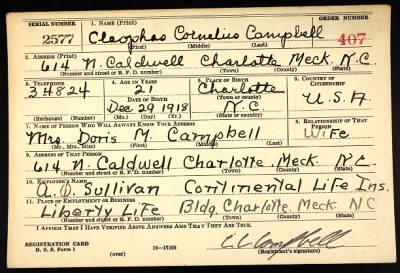 SERIAL NUMBER 1. NAME (Print) ORDER NUMBER
2577 Cleophas Cornelius Campbell 407
(First) (Middle) (Last)
2. ADDRESS (Print)
614 N. Caldwell Charlotte Meck. N.C.
(Number and street or R. F. D. number) (Town) (County) (State)
3. TELEPHONE 4. AGE IN YEARS 5. PLACE OF BIRTH 6. COUNTRY OF CITIZENSHIP
34824 21 Charlotte
DATE OF BIRTH (Town or county)
Dec 29 1918 N.C. U.S.A.
(Exchange) (Number) (Mo.) (Day) (Yr.) (State or country)
7. NAME OF PERSON WHO WILL ALWAYS KNOW YOUR ADDRESS 8. RELATIONSHIP OF THAT PERSON
Mrs. Doris M. Campbell Wife
(Mr., Mrs., Miss) (First) (Middle) (Last)
9. ADDRESS OF THAT PERSON
614 N. Caldwell Charlotte. Meck. N.C.
(Number and street or R. F. D. number) (Town) (County) (State)
10. EMPLOYER'S NAME
Sullivan Continental Life Ins.
11. PLACE OF EMPLOYMENT OR BUSINESS
Liberty Life Bldg. Charlotte. Meck. NC
(Number and street or R. F. D. number) (Town) (County) (State)
I AFFIRM THAT I HAVE VERIFIED ABOVE ANSWERS AND THAT THEY ARE TRUE.
REGISTRATION CARD
D. S. S. Form 1 16-17105 C C Campbell
(over) (Registrant's signature)